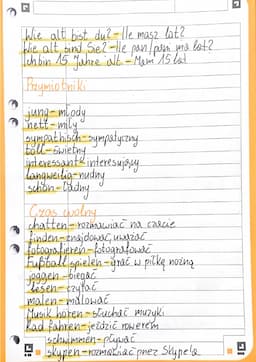 Wie alt bist du? - Ile masz lat?
Wie alt sind Sie? - Ile pan/pani ma lat?
Ich bin 15 Jahre alt - Mam 15 lat
Przymiotniki
jung - młody
nett - miły
sympathisch - sympatyczny
toll - świetny
interessant - interesujący
langweilig - nudny
schön - ładny
Czas wolny
chatten - rozmawiać na czacie
finden - znajdować, uważać
fotografieren - fotografować
Fußball spielen - grać w piłkę nożną
joggen - biegać
lesen - czytać
malen - malować
Musik hören - słuchać muzyki
Rad fahren - jeździć rowerem
schwimmen - pływać
skypen - rozmawiać przez Skype'a